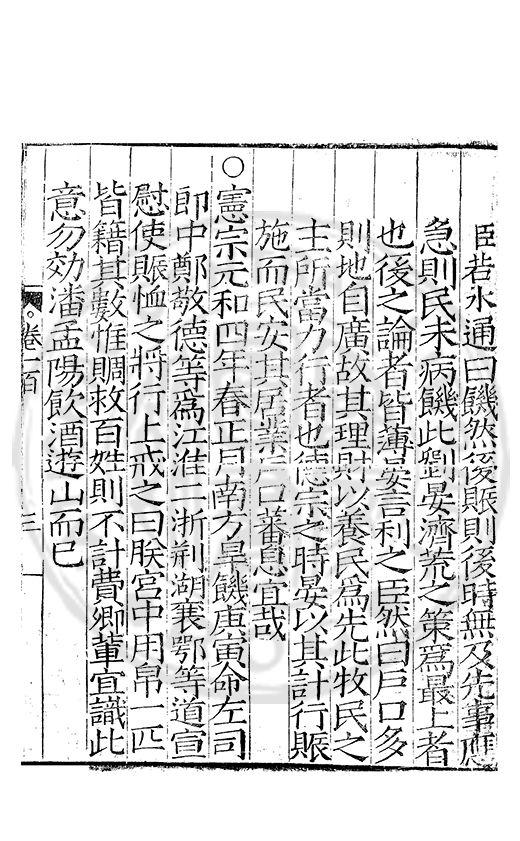 臣若水通曰饑然後賑則後時無及先事應
急則民未病饑此劉晏濟荒之策爲最上者
也後之論者皆薄晏言利之臣然曰戶口多
則地自廣故其理財以養民爲先此牧民之
主所當力行者也德宗之時晏以其計行賑
施而民安其居業戶口蕃息宜哉
○憲宗元和四年春正月南方旱饑庚寅命左司
郎中鄭敬德等爲江淮二浙荆湖襄鄂等道宣
慰使賑恤之將行上戒之曰朕宮中用帛一匹
皆籍其數惟賙救百姓則不計費卿輩宜識此
意勿効潘孟陽飲酒遊山而已
卷一百
三